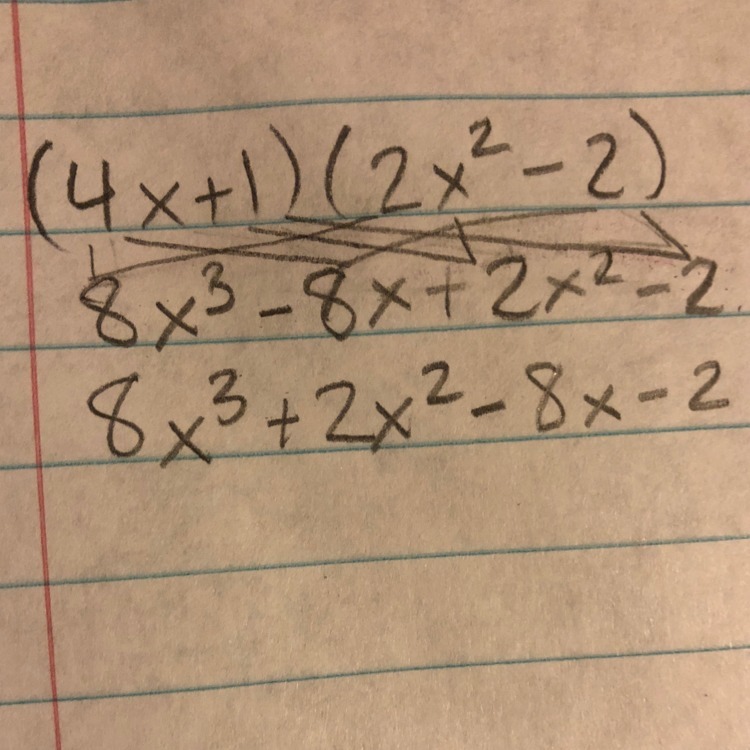 (4x+1)(2x²-2)
8x³-8x+2x²-2
8x³+2x²-8x-2